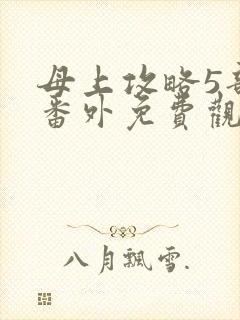 母上攻略5
番外免費觀
八月飄雪.